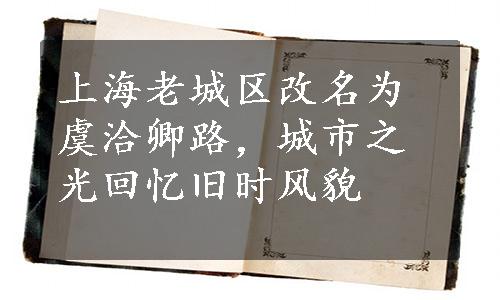 上海老城区改名为
虞洽卿路，城市之
光回忆旧时风貌